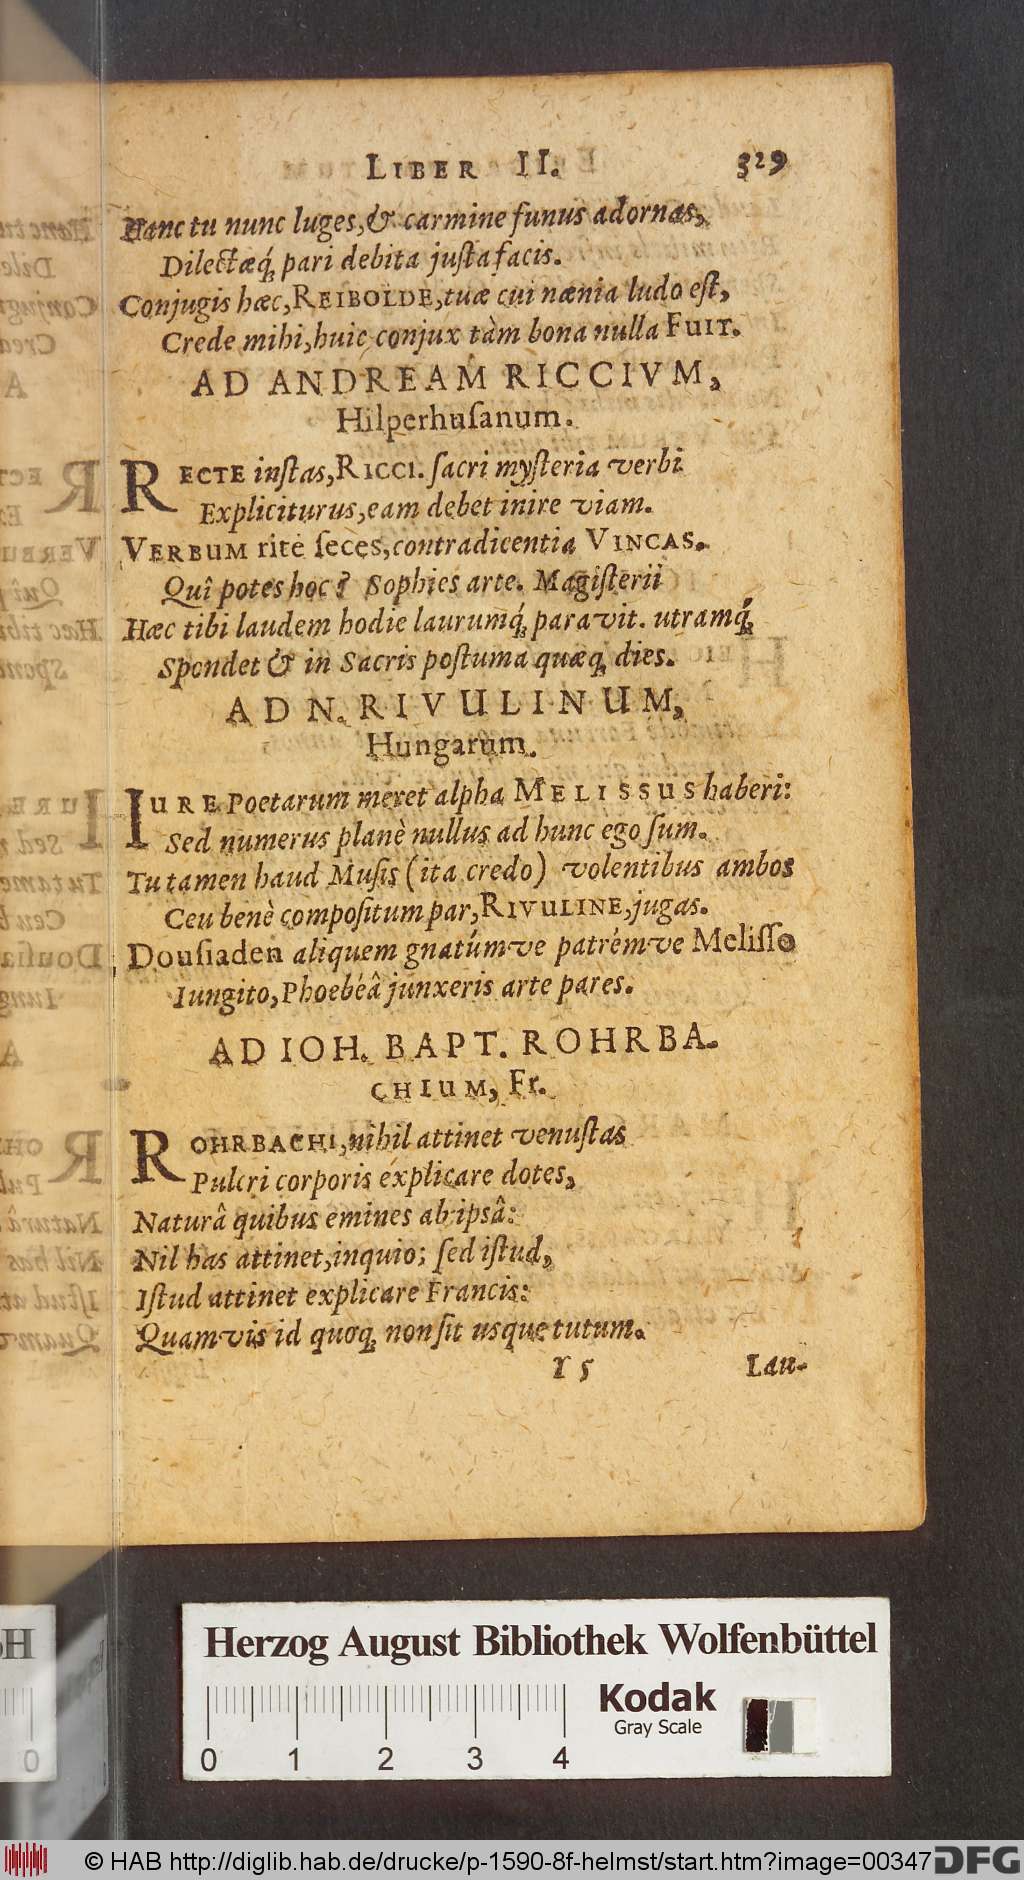 LIBER II. 329
Hanc tu nunc luges, & carmine funus adornas,
Dilectæq́; pari debita justa facis.
Conjugis hæc, REIBOLDE, tuæ cui nænia ludo est,
Crede mihi, huic conjux tàm bona nulla FUIT.
AD ANDREAM RICCIVM,
Hilperhusanum.
RECTE instas, RICCI. sacri mysteria verbi
Expliciturus, eam debet inire viam.
VERBUM rite seces, contradicentia VINCAS.
Quî potes hoc? Sophies arte. Magisterii
Hæc tibi laudem hodie laurumq́; paravit. utramq́;
Spondet & in Sacris postuma quæq; dies.
AD N. RIVULINUM,
Hungarum.
IURE Poetarum meret alpha MELISSUS haberi:
Sed numerus planè nullus ad hunc ego sum.
Tu tamen haud Musis (ita credo) volentibus ambos
Ceu benè compositum par, RIVULINE, jugas.
Dousiaden aliquem gnatúmve patrémve Melisso
Iungito, Phoebéâ junxeris arte pares.
AD IOH. BAPT. ROHRBA-
CHIUM, Fr.
ROHRBACHI, nihil attinet venustas
Pulcri corporis explicare dotes,
Naturâ quibus emines ab ipsâ:
Nil has attinet, inquio; sed istud,
Istud attinet explicare Francis:
Quamvis id quoq; non sit usque tutum.
Y 5 Lau-
Herzog August Bibliothek Wolfenbüttel
Kodak
Gray Scale
0 1 2 3 4
© HAB http://diglib.hab.de/drucke/p-1590-8f-helmst/start.htm?image=00347
DFG